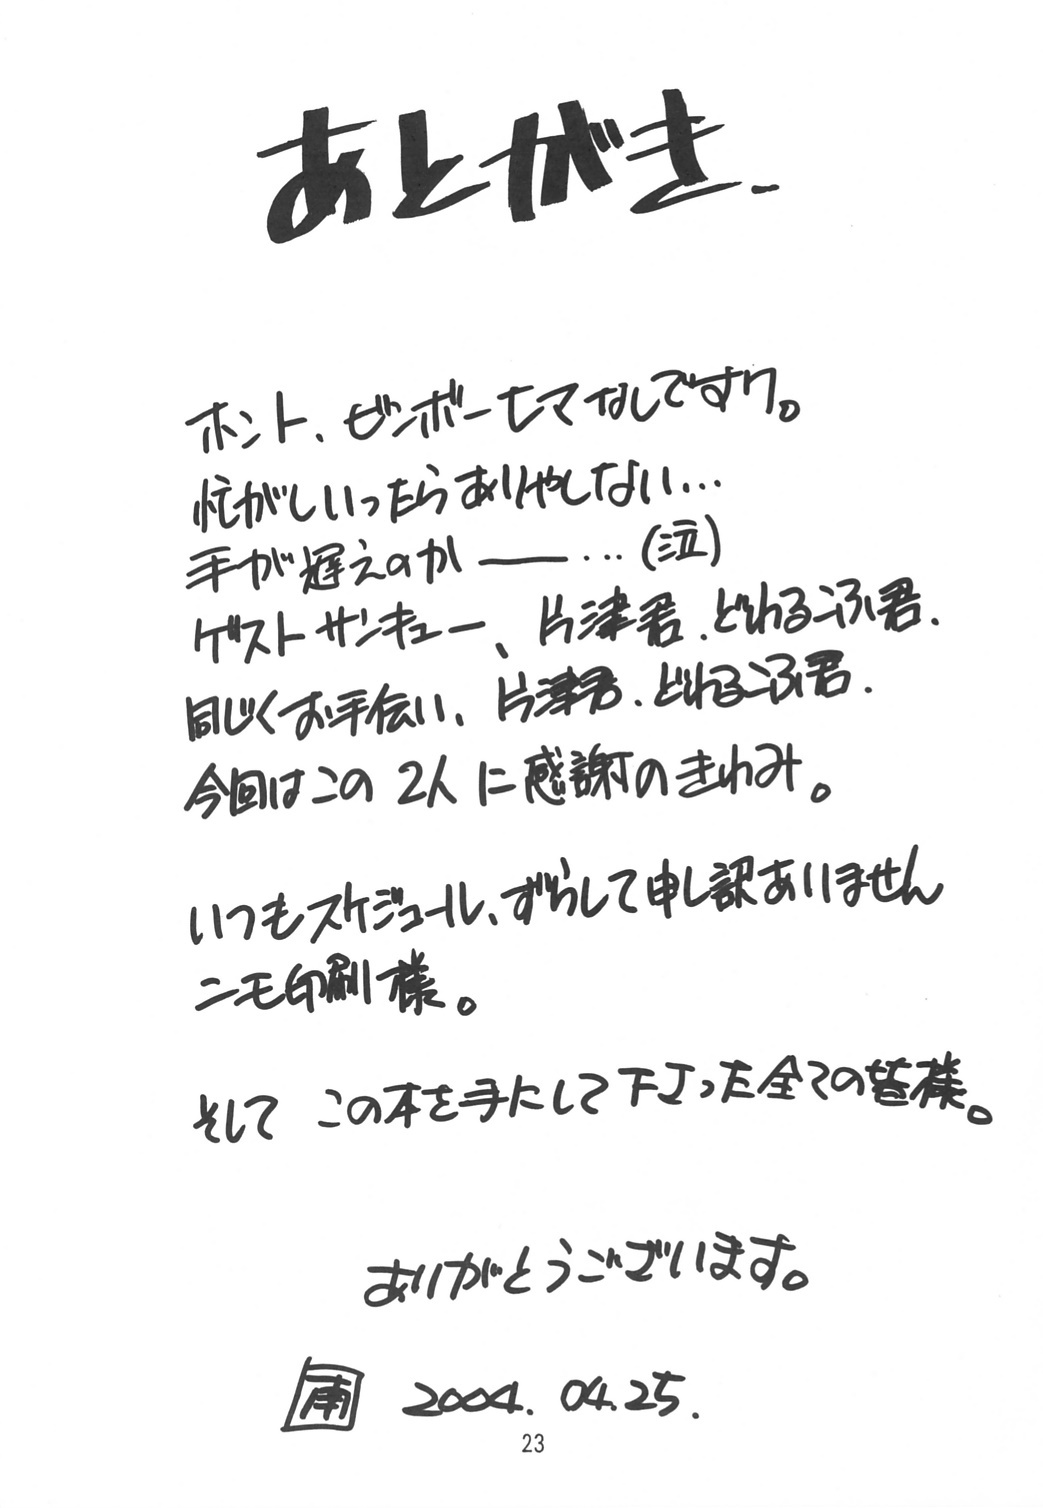 あとがき
ホント、ビンボーヒマなしですワ。
忙がしいったらありゃしない…
手が遅えのかー…(泣)
ゲストサンキュー、片津君.どわるこふ君.
同じくお手伝い、片津君.どわるこふ君.
今回はこの2人に感謝のきわみ。
いつもスケジュール、ずらして申し訳ありません
ニモ印刷様。
そして この本を手にして下さった全ての皆様。
ありがとうございます。
南 2004.04.25.
23